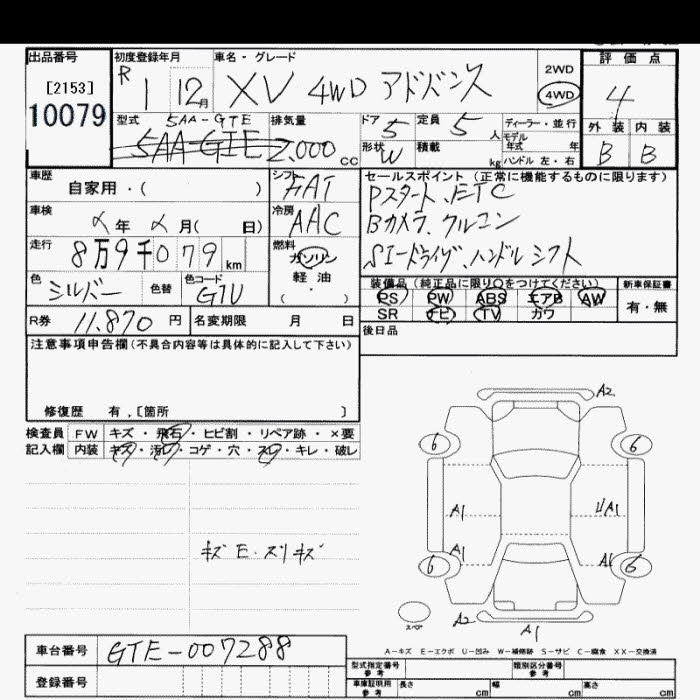 出品番号
[2153]
10079
初度登録年月
R 1 12月
車名・グレード
XV 4WD アドバンス
2WD
4WD
評価点
4
型式 5AA-GTE
5AA-GTE
排気量
2,000 cc
ドア 5
定員 5 人
ディーラー・並行
モデル
年式 年
外装 内装
B B
形状 W
積載 kg
ハンドル 左・右
車歴
自家用・( )
シフト
FAT
セールスポイント (正常に機能するものに限ります)
Pスタート、ETC
Bカメラ、クルコン
SIードライヴ、ハンドルシフト
車検
年 月( 日)
冷房
AAC
走行
8万9千079 km
燃料
ガソリン
軽油
( ・ )
色
シルバー
色替
色コード
G1U
装備品 (純正品に限り○をつけてください)
新車保証書
PS PW ABS エアB AW
有・無
SR ナビ TV カワ
R券 11,870 円
名変期限 月 日
後日品
注意事項申告欄(不具合内容等は具体的に記入して下さい)
修復歴 有,[箇所 ]
検査員 FW キズ・飛石・ヒビ割・リペア跡・×要
記入欄 内装 キズ・汚レ・コゲ・穴・スレ・キレ・破レ
キズE・スリキズ
A2
6 6
A1
A1
A1
A1
6 6
スペア
A2
A1
A-キズ E-エクボ U-凹み W-補修跡 S-サビ C-腐食 XX-交換済
車台番号
GTE-007288
登録番号
型式指定番号
参考
類別区分番号
参考
車庫証明用
参考
長さ cm
幅 cm
高さ cm